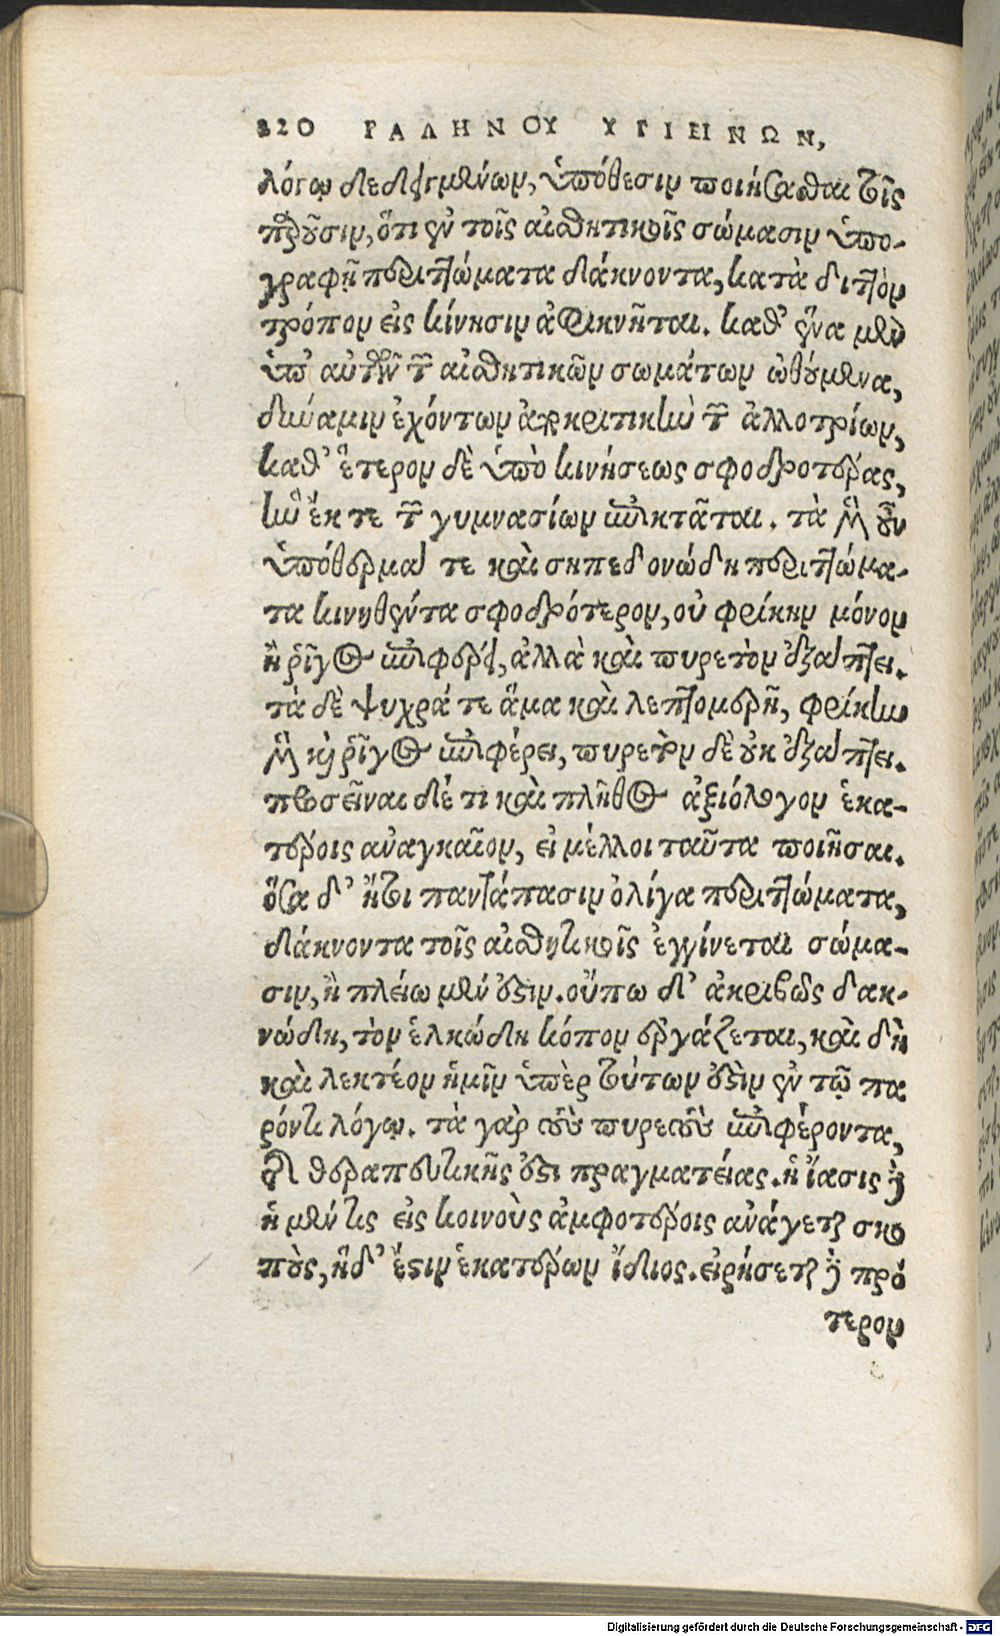 220 ΓΑΛΗΝΟΥ ΥΓΙΕΙΝΩΝ,
λόγῳ δεδειγμένων, ὑπόθεσιν ποιήσασθαι τοῖς
παροῦσιν, ὅτι ἐν τοῖς αἰσθητικοῖς σώμασιν ὑπο-
γραφῇ περιττώματα δάκνοντα, κατὰ διττὸν
τρόπον εἰς κίνησιν ἀφικνῆται. καθ' ἕνα μὲν
ὑπ' αὐτῶν τῶν αἰσθητικῶν σωμάτων ὠθούμενα,
δύναμιν ἐχόντων ἀποκριτικὴν τῶν ἀλλοτρίων,
καθ' ἕτερον δὲ ὑπὸ κινήσεως σφοδροτέρας,
ἣν ἔκ τε τῶν γυμνασίων ἐπικτᾶται. τὰ μὲν οὖν
ὑπόθερμά τε καὶ σηπεδονώδη περιττώμα-
τα κινηθέντα σφοδρότερον, οὐ φρίκην μόνον
ἢ ῥῖγος ἐπιφέρει, ἀλλὰ καὶ πυρετὸν ἐξάπτει.
τὰ δὲ ψυχρά τε ἅμα καὶ λεπτομερῆ, φρίκην
μὲν καὶ ῥῖγος ἐπιφέρει, πυρετὸν δὲ οὐκ ἐξάπτει.
προσεῖναι δέ τι καὶ πλῆθος ἀξιόλογον ἑκα-
τέροις ἀναγκαῖον, εἰ μέλλοι ταῦτα ποιῆσαι.
ὅσα δ' ἤτοι παντάπασιν ὀλίγα περιττώματα,
δάκνοντα τοῖς αἰσθητικοῖς ἐγγίνεται σώμα-
σιν, ἢ πλείω μέν ἐστιν. οὔπω δ' ἀκριβῶς δακ-
νώδη, τὸν ἑλκώδη κόπον ἐργάζεται, καὶ δὴ
καὶ λεκτέον ἡμῖν ὑπὲρ τούτων ἐστὶν ἐν τῷ πα
ρόντι λόγῳ. τὰ γὰρ τοὺς πυρετοὺς ἐπιφέροντα,
τῆς θεραπευτικῆς ἐστι πραγματείας. ἡ ἴασις δὲ
ἡ μέν τις εἰς κοινοὺς ἀμφοτέροις ἀνάγεται σκο
πούς, ἡ δ' ἔστιν ἑκατέρων ἴδιος. εἰρήσεται δὲ πρό
τερον
Digitalisierung gefördert durch die Deutsche Forschungsgemeinschaft - DFG